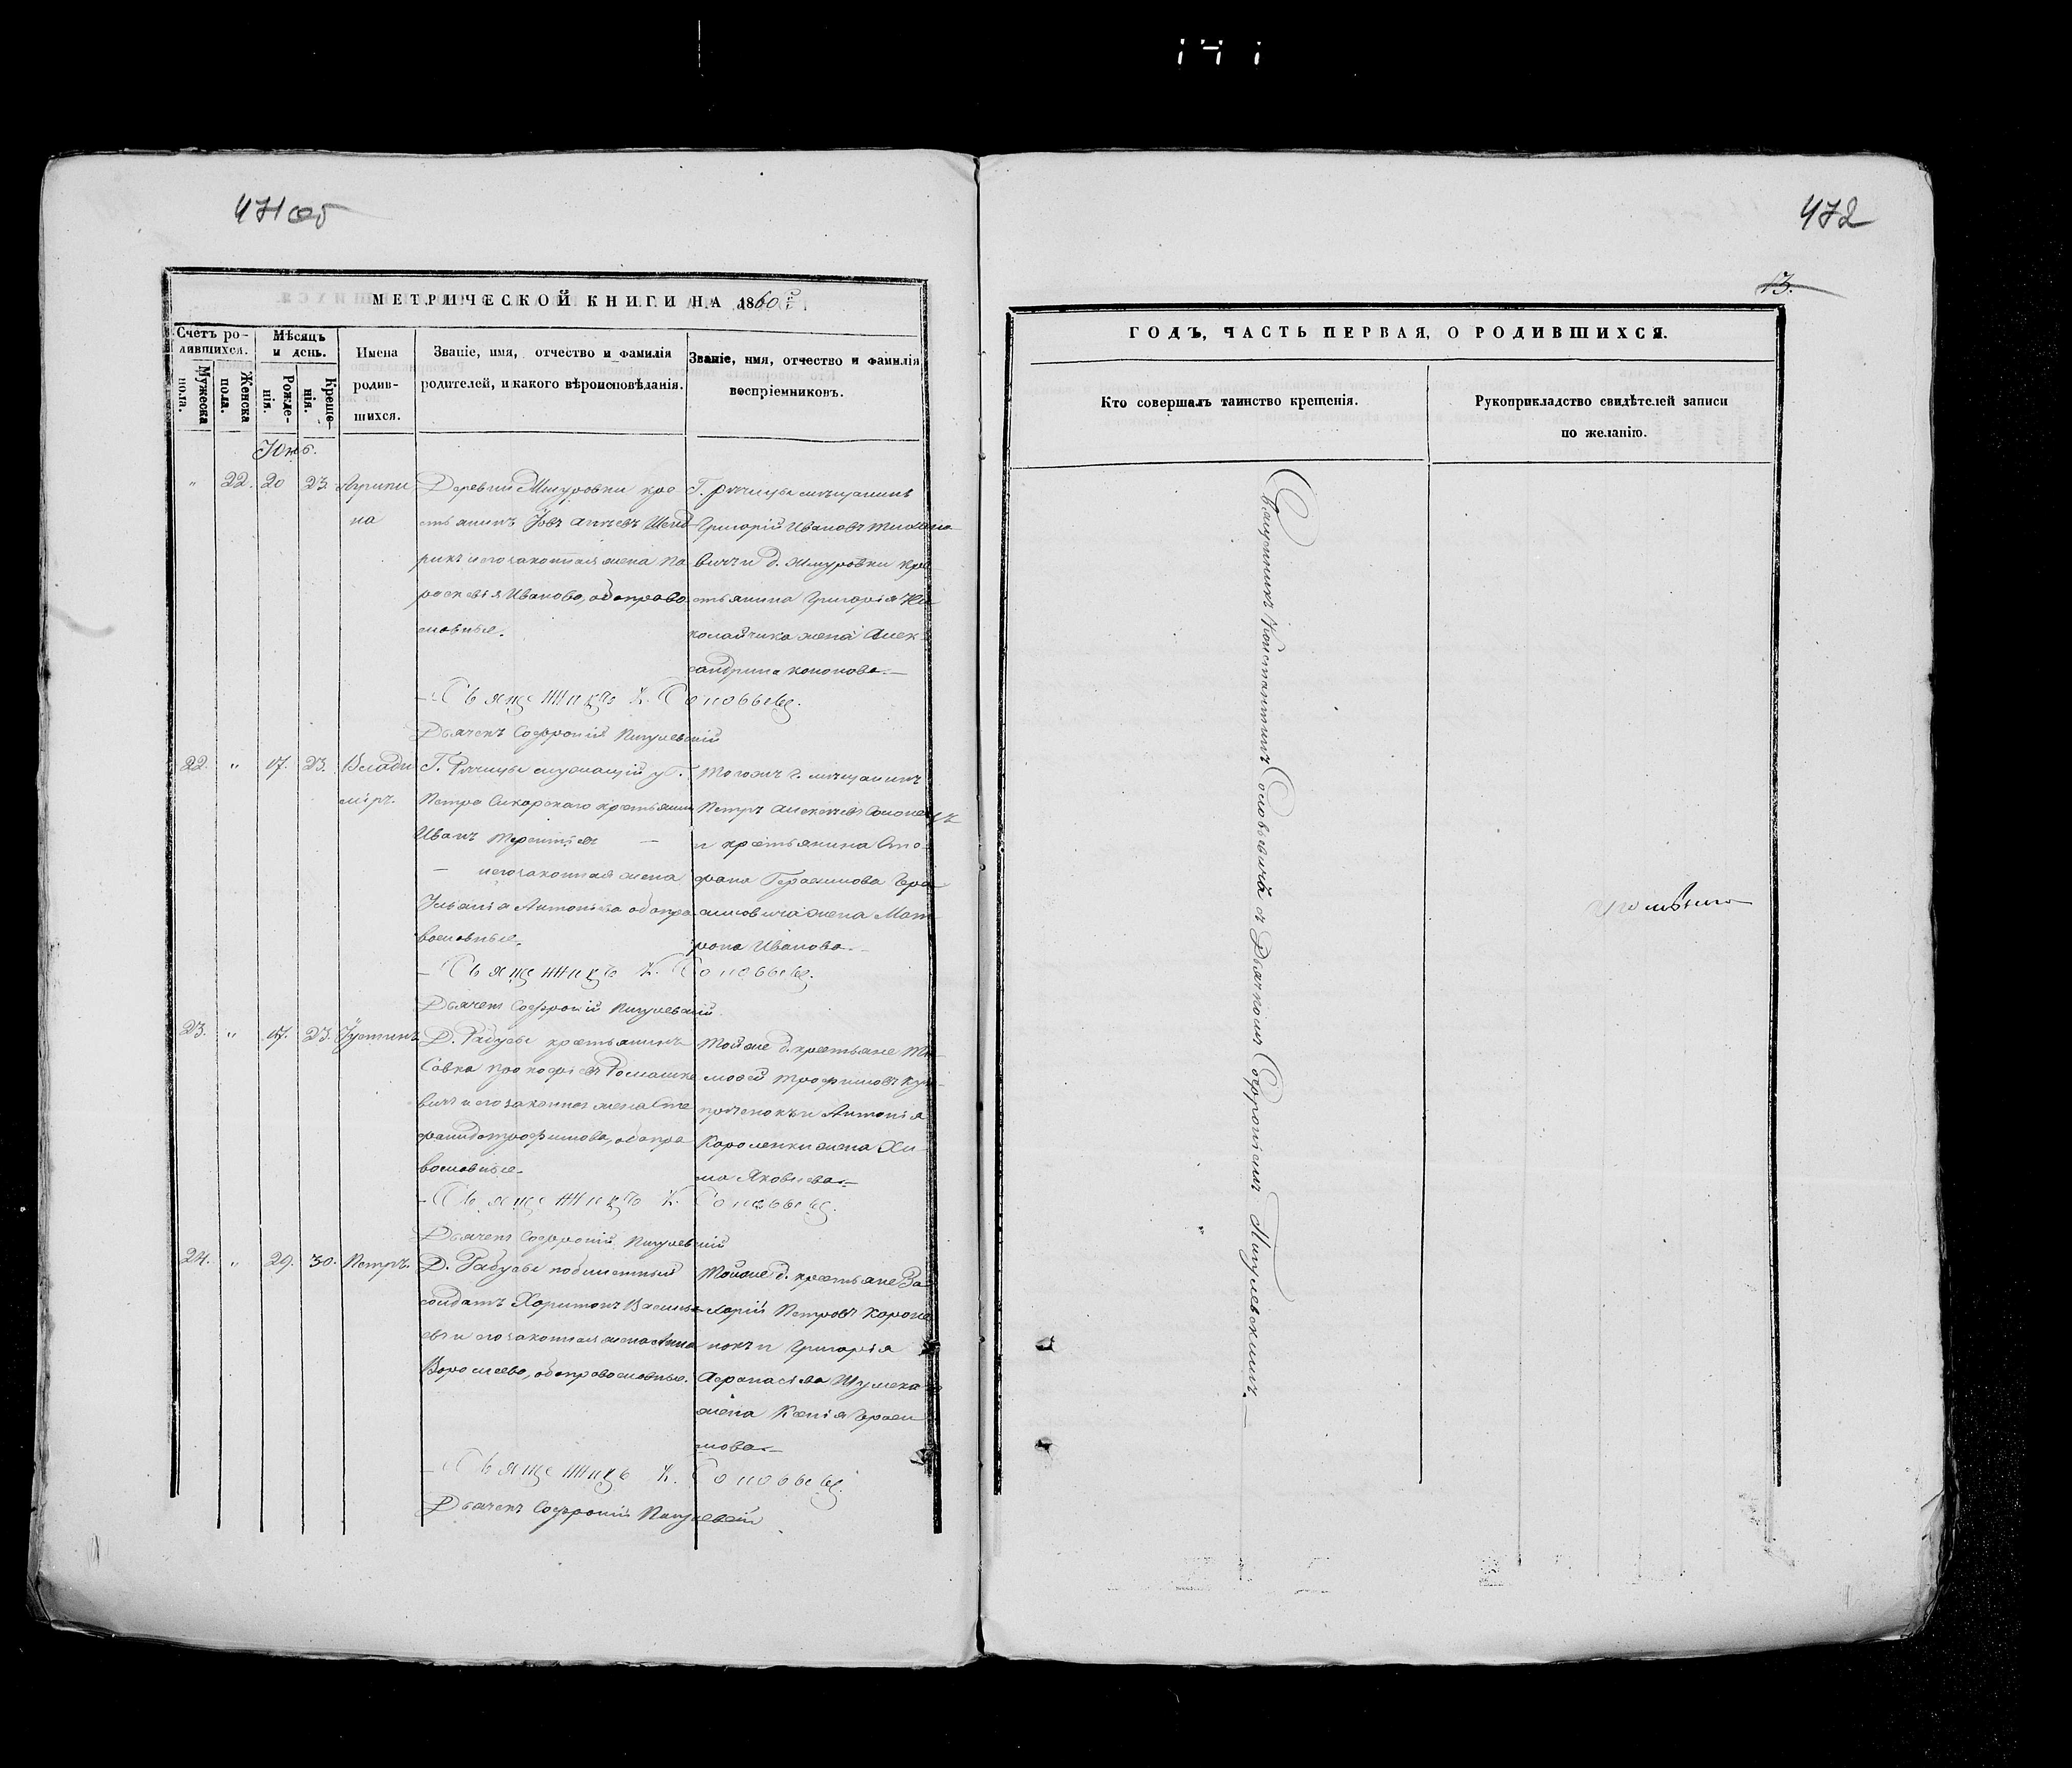 471 об
472
13.
МЕТРИЧЕСКОЙ КНИГИ НА 1860й
Счетъ ро-
дившихся.
Мужеска
пола.
Женска
пола.
Мѣсяцъ
и день.
Рожде-
нія.
Креще-
нія.
Имена
родив-
шихся.
Званіе, имя, отчество и фамилія
родителей, и какого вѣроисповѣданія.
Званіе, имя, отчество и фамилія
воспріемниковъ.
Юнь.
" 22. 20 23. Агрипи
на
Деревни кре
стьянинъ Іовъ
рикъ и его законная жена Па
раскевія Иванова, оба право
славные.
Г. Рѣчицы мѣщанинъ
Григорій Ивановъ
вичъ и д. кре
стьянина Григорія Ни
колайчика жена Алек
сандрина Кононова.—
— Священникъ К. Соловьевъ.
Дьячекъ Софроній Пигулевскій
22. " 17. 23. Влади
міръ.
Г. Рѣчицы служащій у Г.
Петра Сикорскаго крестьянинъ
Иванъ Терентіевъ —
— и его законная жена
Ульянія Антонова оба пра
вославные.
Тогожъ г. мѣщанинъ
Петръ Алексѣевъ
и крестьянина Сте-
фана Герасимова Гера
симовича жена Мат
рона Иванова.—
— Священникъ К. Соловьевъ.
Дьячекъ Софроній Пигулевскій
23. " 17. 23. Іустинъ.
Д. Рабусы крестьянинъ
Савка Прокофіевъ Ромашке
вичъ и его законная жена Сте
фанида Трофимова, оба пра
вославные.
Тойже д. крестьяне Ти
мофей Трофимовъ
и Антонія
Короленки жена Хи
ма Яковлева.—
— Священникъ К. Соловьевъ.
Дьячекъ Софроній Пигулевскій
24. " 29. 30. Петръ.
Д. Рабусы
солдатъ Харитонъ Василь
евъ и его законная жена Анна
оба православные.
Тойже д. крестьяне За
харій Петровъ Короле
нокъ и Григорія
Афанасіева Шумека
жена Ксенія Гераси
мова.—
— Священникъ К. Соловьевъ.
Дьячекъ Софроній Пигулевскій
ГОДЪ, ЧАСТЬ ПЕРВАЯ, О РОДИВШИХСЯ.
Кто совершалъ таинство крещенія.
Рукоприкладство свидѣтелей записи
по желанію.
Священникъ Константинъ Соловьевъ съ Дьячкомъ Софроніемъ Пигулевскимъ.—